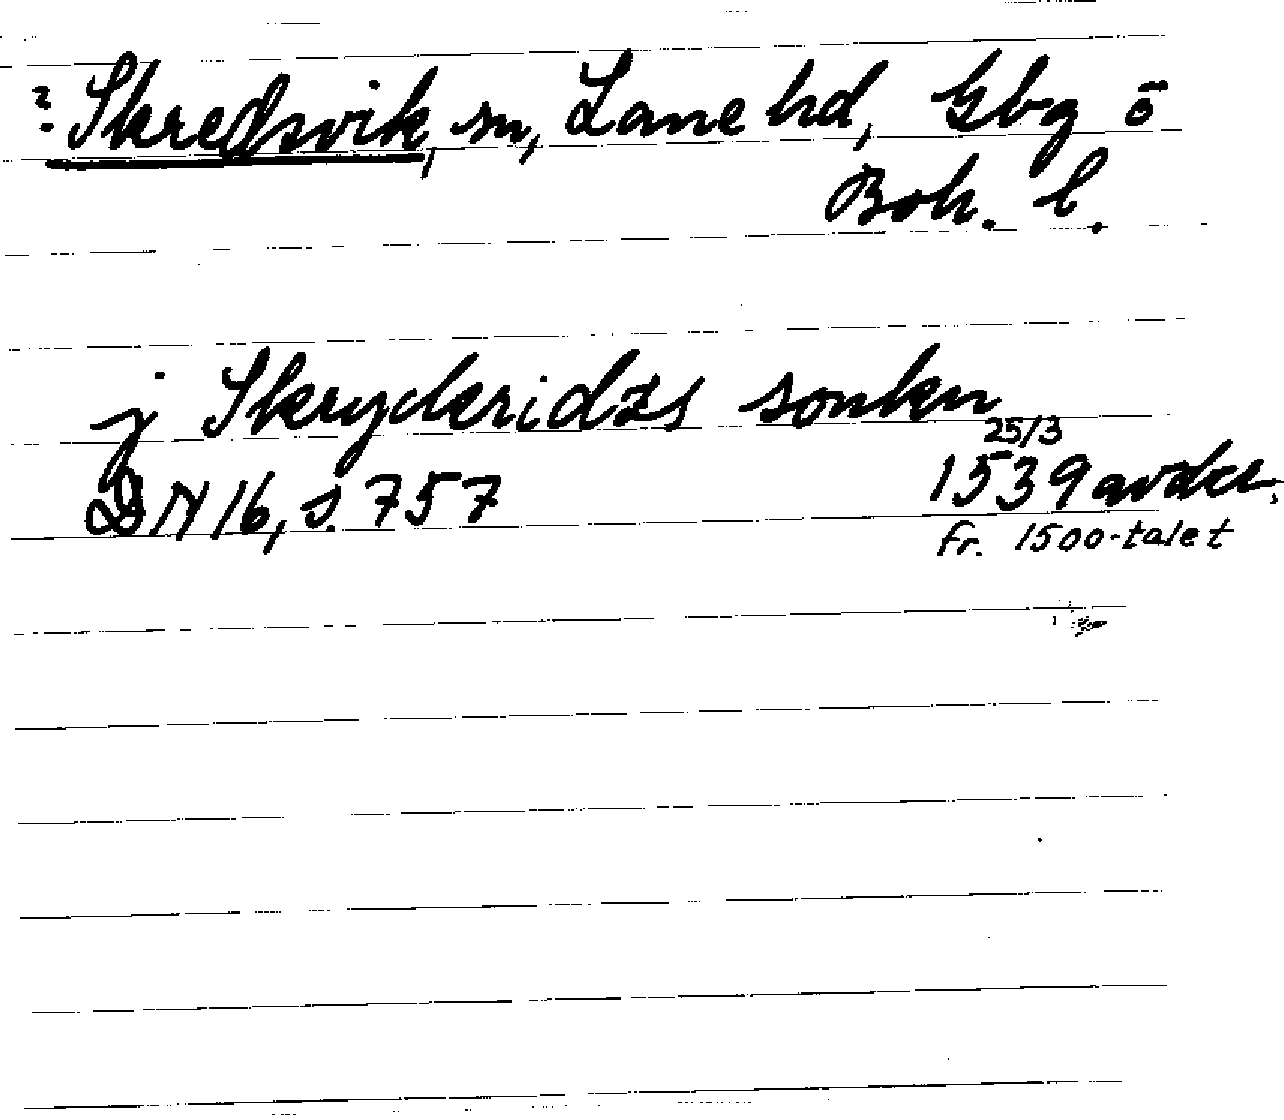 ? Skredsvik, sn, Lane hd, Gbg o
Boh. l.
j Skryckridzs sonkn
25/3
DN 16, s. 757 1539 avskr.
fr. 1500-talet